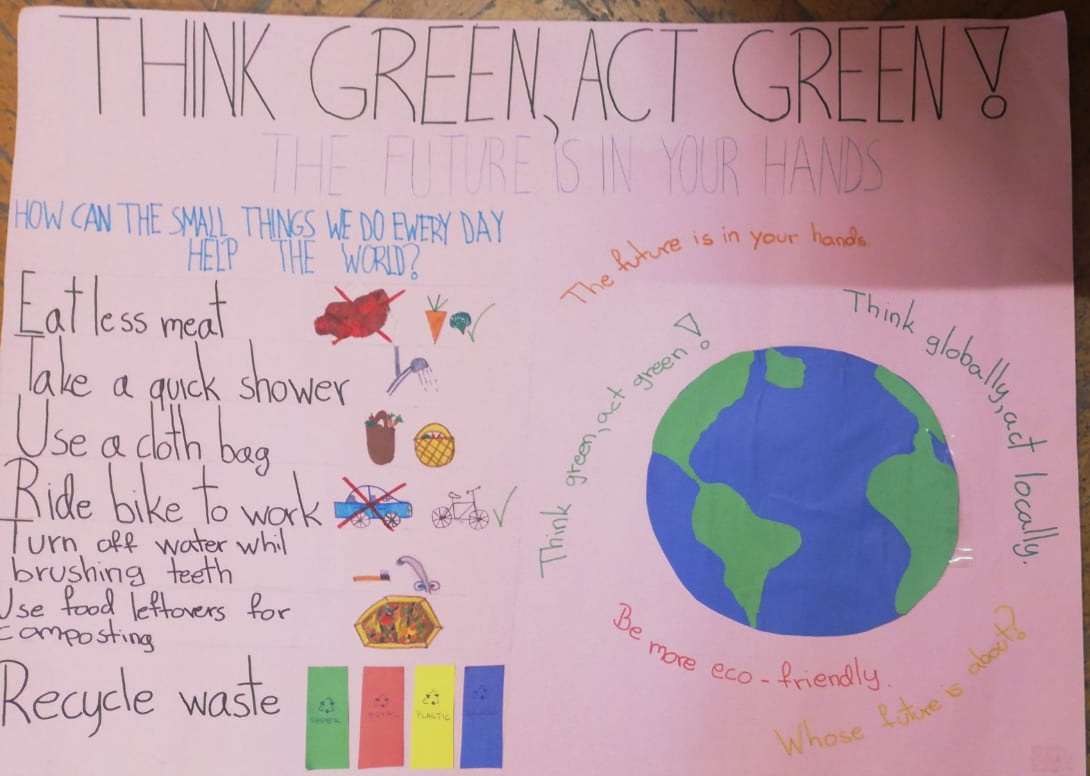 THINK GREEN, ACT GREEN!
THE FUTURE IS IN YOUR HANDS
HOW CAN THE SMALL THINGS WE DO EWERY DAY
HELP THE WORLD?
Eat less meat
Take a quick shower
Use a cloth bag
Ride bike to work
Turn off water whil
brushing teeth
Use food leftovers for
composting
Recycle waste
PAPER
METAL
PLASTIC
The future is in your hands.
Think green, act green!
Think globally, act locally.
Be more eco-friendly.
Whose future is about?